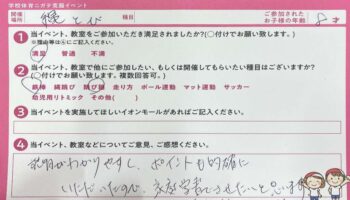 学校体育ニガテ克服イベント
開催場所 種目 とび ご参加されたお子様の年齢 8 才
1 当イベント、教室をご参加いただき満足されましたか?(○付けでお願い致します。)
※理由等は④にご記入ください。
満足 普通 不満
2 当イベント、教室で他にご参加したい、もしくは開催してもらいたい種目はございますか?
(○付けでお願い致します。複数回答可。)
鉄棒 縄跳び 跳び箱 走り方 ボール運動 マット運動 サッカー
幼児用リトミック その他( )
3 当イベントを実施してほしいイオンモールがあればご記入ください。
4 当イベント、教室などについてご意見、ご感想ください。
説明がわかりやすく、ポイントも的確に
いただいたので、家庭学習でさせたいと思います